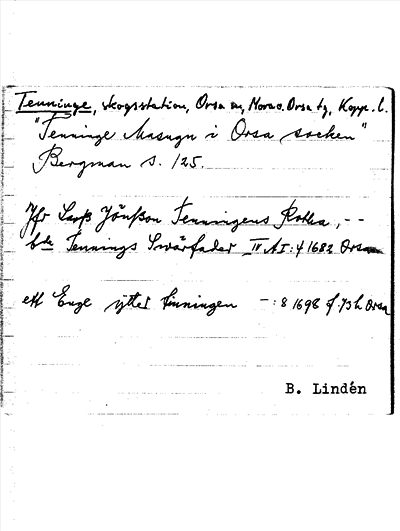 Tenninge, skogsstation, Orsa sn, Mora o. Orsa tg, Kopp. l.
"Tenninge Masugn i Orsa socken"
Bergman s. 125.
Jfr Larß Jönßon Tenningens Kolla, --
bde Tennings Swärfader IV AI:4 1682 Orsa
ett Enge ytter tinningen -:8 1698 f. 73 h Orsa
B. Lindén